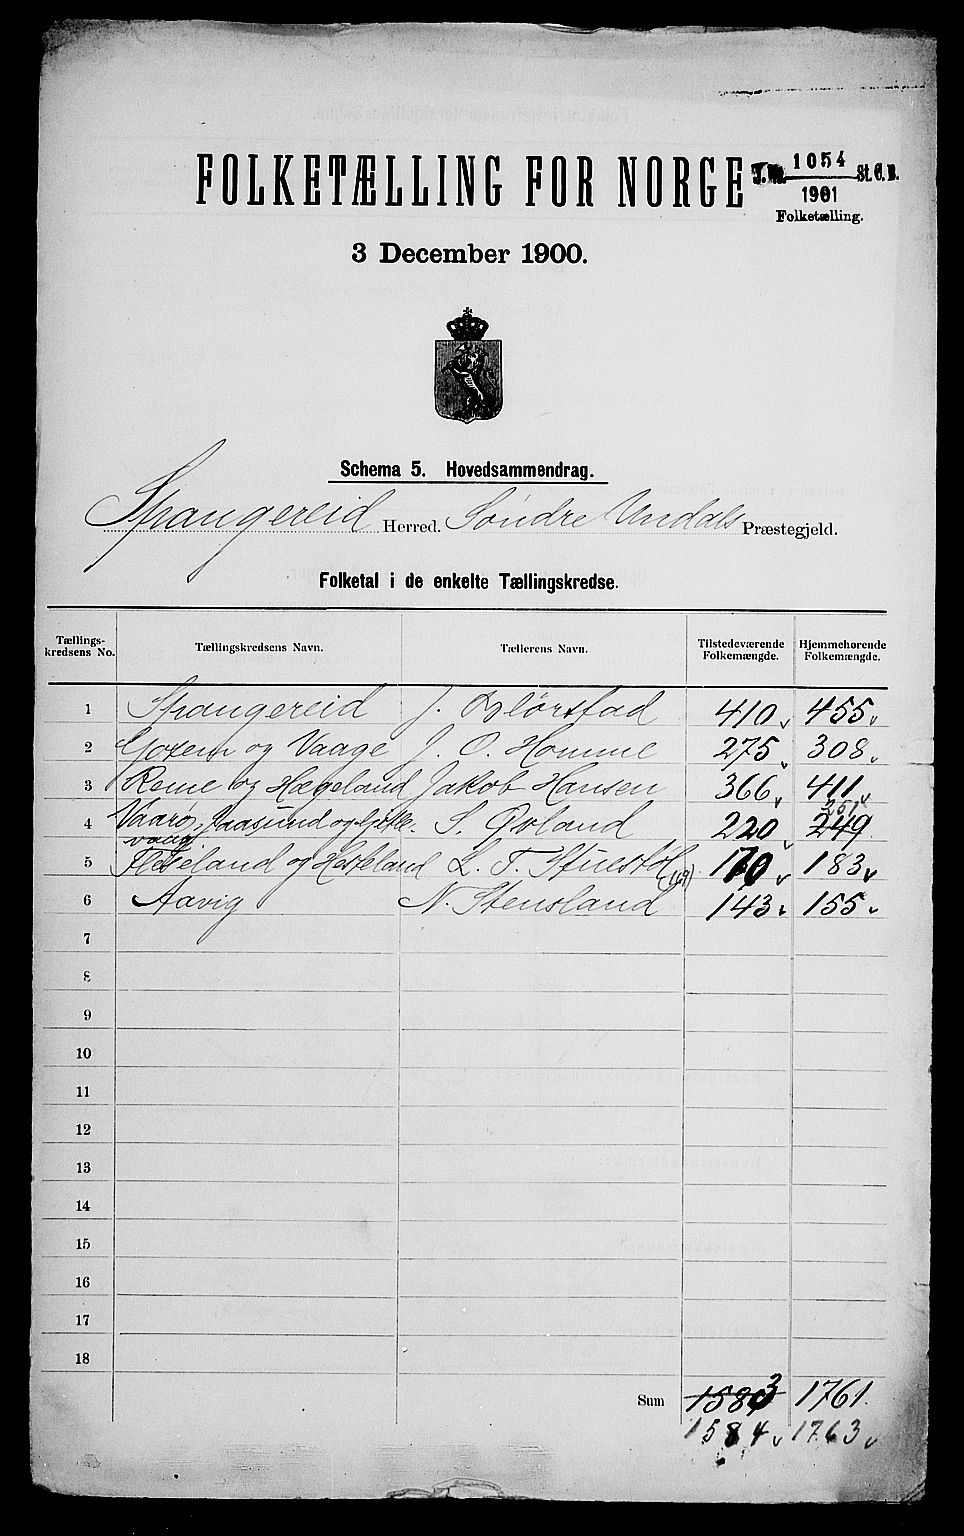 FOLKETÆLLING FOR NORGE
J. No. 1054 St. C. B.
1901
Folketælling.
3 December 1900.
Schema 5. Hovedsammendrag.
Spangereid Herred. Søndre Undals Præstegjeld.
Folketal i de enkelte Tællingskredse.
Tællings-kredsens No. Tællingskredsens Navn. Tællerens Navn. Tilstedeværende Folkemængde. Hjemmehørende Folkemængde.
1 Spangereid J. 410 455
2 og Vaage J. O. Homme 275 308
3 Reme og Hægeland Jakob Hansen 366 411
251
4 Vaarø, og S. Øvland 220 249
vaag
5 og Hesteland L. T. 170 183
(169)
6 Aavig N. Stensland 143 155
7
8
9
10
11
12
13
14
15
16
17
18
Sum 1583 1761
1584 1763